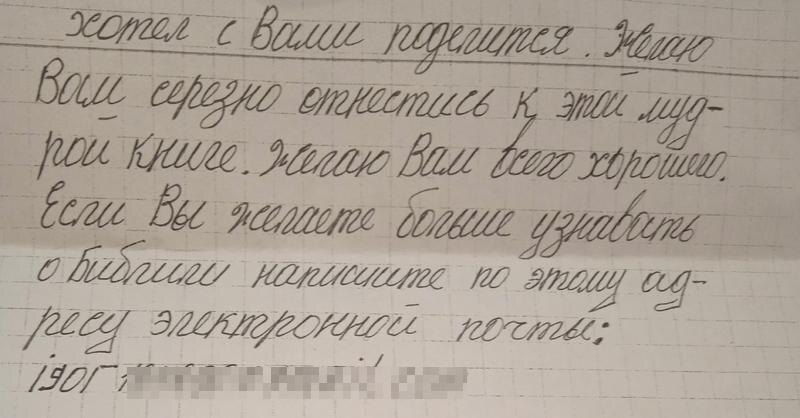 хотел с Вами поделится. Желаю
Вам серезно отнестись к этой муд-
рой книге. Желаю Вам всего хорошего.
Если Вы желаете больше узнавать
о Библиии напишите по этому ад-
ресу электронной почты: